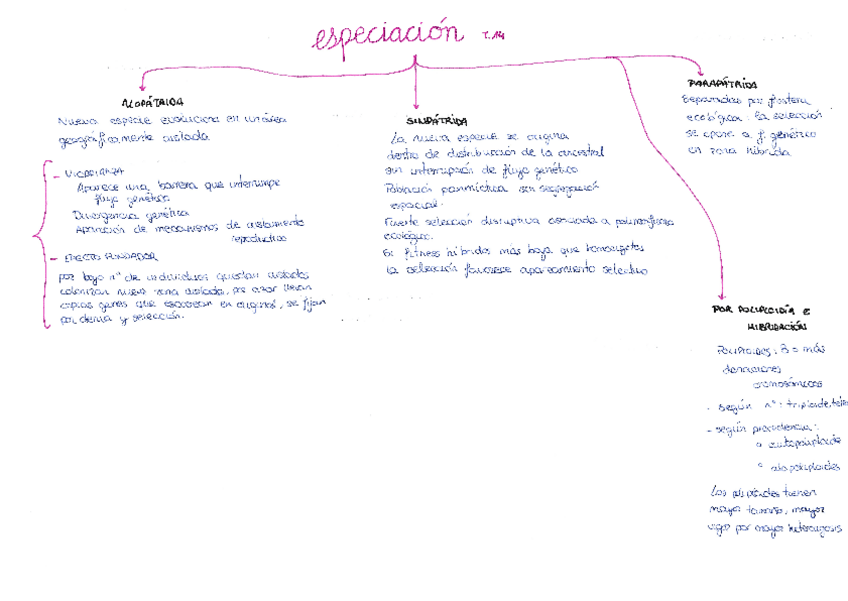 especiación T.14
ALOPÁTRIDA
Nueva especie evoluciona en un área
geográficamente aislada
- VICARIANZA
Aparece una barrera que interrumpe
flujo genético
Divergencia genética
Aparición de mecanismos de aislamiento
reproductivo
- EFECTO FUNDADOR
por bajo nº de individuos quedan aislados
colonizan nueva zona aislada, por azar llevan
copias genes que escasean en original, se fijan
por deriva y selección.
SIMPÁTRIDA
La nueva especie se origina
dentro de distribución de la ancestral
sin interrupción de flujo genético
Población panmíctica sin segregación
espacial.
Fuerte selección disruptiva asociada a polimorfismo
ecológico.
Si fitness híbrido más bajo que homocigotos
la selección favorece apareamiento selectivo
PARAPÁTRIDA
Separadas por frontera
ecológica: la selección
se opone a f. genético
en zona híbrida
POR POLIPLOIDÍA E
HIBRIDACIÓN
POLIPLOIDES: 3 o más
dotaciones
cromosómicas
- según nº: triploide,
- según procedencia:
º autopoliploide
º alopoliploides
Los poliploides tienen
mayor tamaño, mayor
vigor por mayor heterocigosis